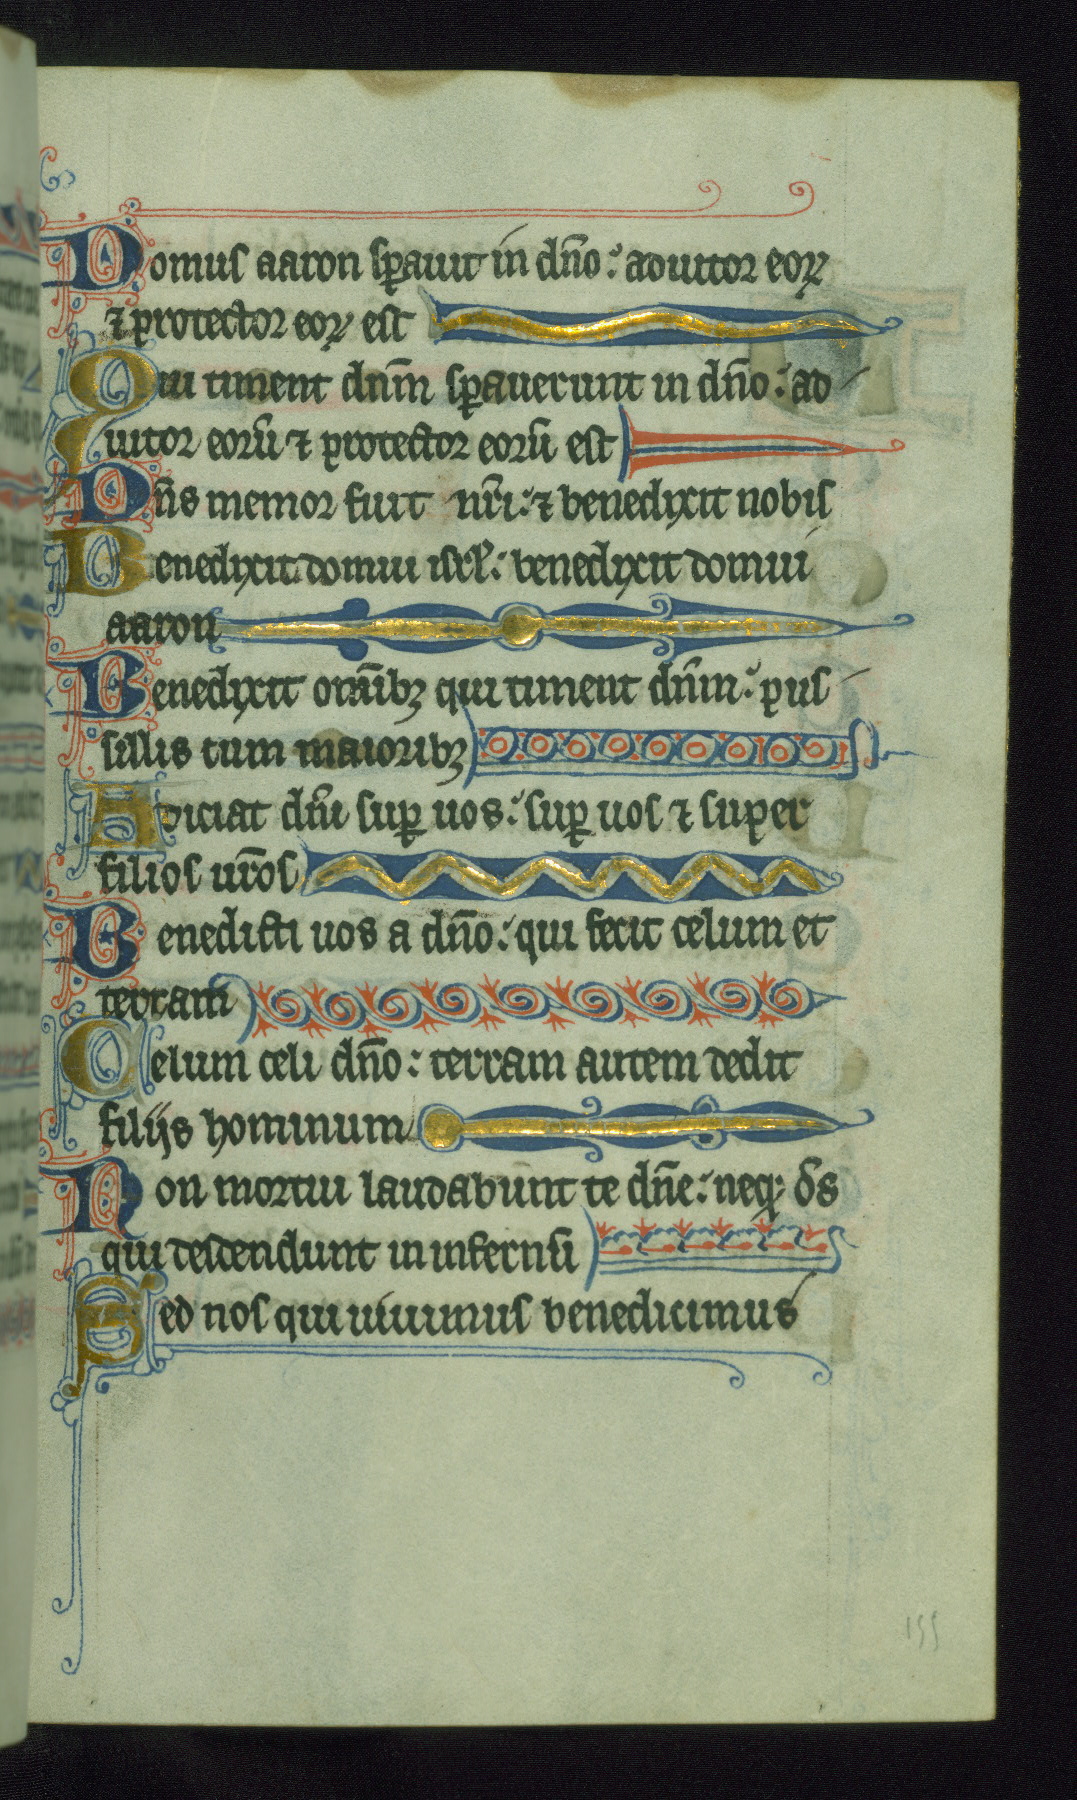 Domus aaron sꝑauit in dn̄o: adiutor eoꝝ
⁊ protector eoꝝ est
Qui timent dn̄m sꝑauerunt in dn̄o: ad
iutor eorū ⁊ protector eorū est
Dn̄s memor fuit nr̄i: ⁊ benedixit nobis
Benedixit domui isrl̄: benedixit domui
aaron
Benedixit om̄ibꝫ qui timent dn̄m: pus
sillis cum maioribꝫ
Adiciat dn̄s suꝑ uos: suꝑ uos ⁊ super
filios ur̄os
Benedicti uos a dn̄o: qui fecit celum et
terram
Celum celi dn̄o: terram autem dedit
filijs hominum
Non mortui laudabunt te dn̄e: neqꝫ om̄s
qui descendunt in infernū
Sed nos qui uiuimus benedicimus
155